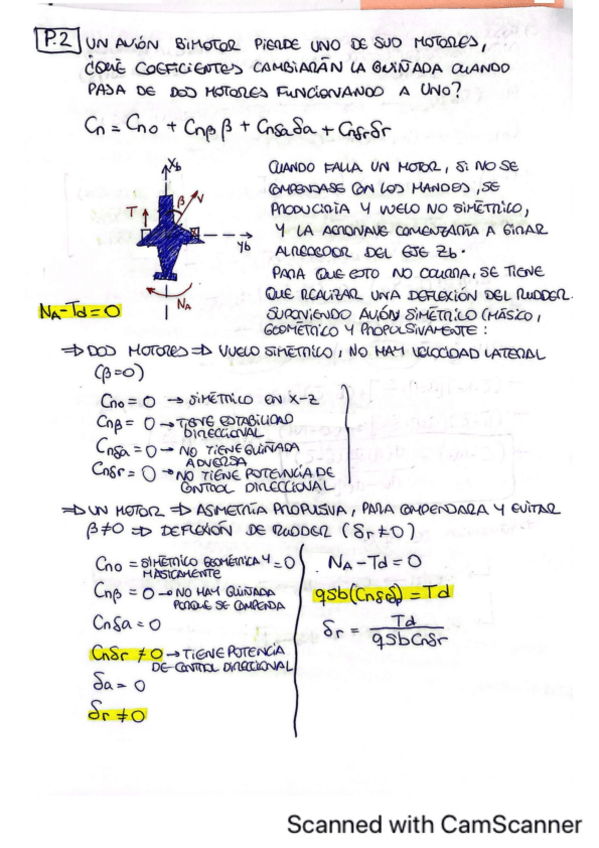 P.2 UN AVIÓN BIMOTOR PIERDE UNO DE SUS MOTORES,
¿QUÉ COEFICIENTES CAMBIARÁN LA GUIÑADA CUANDO
PASA DE DOS MOTORES FUNCIONANDO A UNO?
Cn = Cno + Cnβ β + Cnδa δa + Cnδr δr
Xb
β
V
T
Yb
NA
NA - Td = 0
CUANDO FALLA UN MOTOR, SI NO SE
COMPENSASE CON LOS MANDOS, SE
PRODUCIRÍA Y VUELO NO SIMÉTRICO,
Y LA AERONAVE COMENZARÍA A GIRAR
ALREDEDOR DEL EJE Zb.
PARA QUE ESTO NO OCURRA, SE TIENE
QUE REALIZAR UNA DEFLEXIÓN DEL RUDDER.
SUPONIENDO AVIÓN SIMÉTRICO (MÁSICO,
GEOMÉTRICO Y PROPULSIVAMENTE:
⇒ DOS MOTORES ⇒ VUELO SIMÉTRICO, NO HAY VELOCIDAD LATERAL
(β=0)
Cno = 0 → SIMÉTRICO EN X-Z
Cnβ = 0 → TIENE ESTABILIDAD
DIRECCIONAL
Cnδa = 0 → NO TIENE GUIÑADA
ADVERSA
Cnδr = 0 → NO TIENE POTENCIA DE
CONTROL DIRECCIONAL
⇒ UN MOTOR ⇒ ASIMETRÍA PROPULSIVA, PARA COMPENSARLA Y EVITAR
β≠0 ⇒ DEFLEXIÓN DE RUDDER (δr ≠ 0)
Cno = SIMÉTRICO GEOMÉTRICA Y = 0
MÁSICAMENTE
Cnβ = 0 → NO HAY GUIÑADA
PORQUE SE COMPENSA
Cnδa = 0
Cnδr ≠ 0 → TIENE POTENCIA
DE CONTROL DIRECCIONAL
δa = 0
δr ≠ 0
NA - Td = 0
qSb(Cnδ δr) = Td
δr = Td / qSbCnδr
Scanned with CamScanner